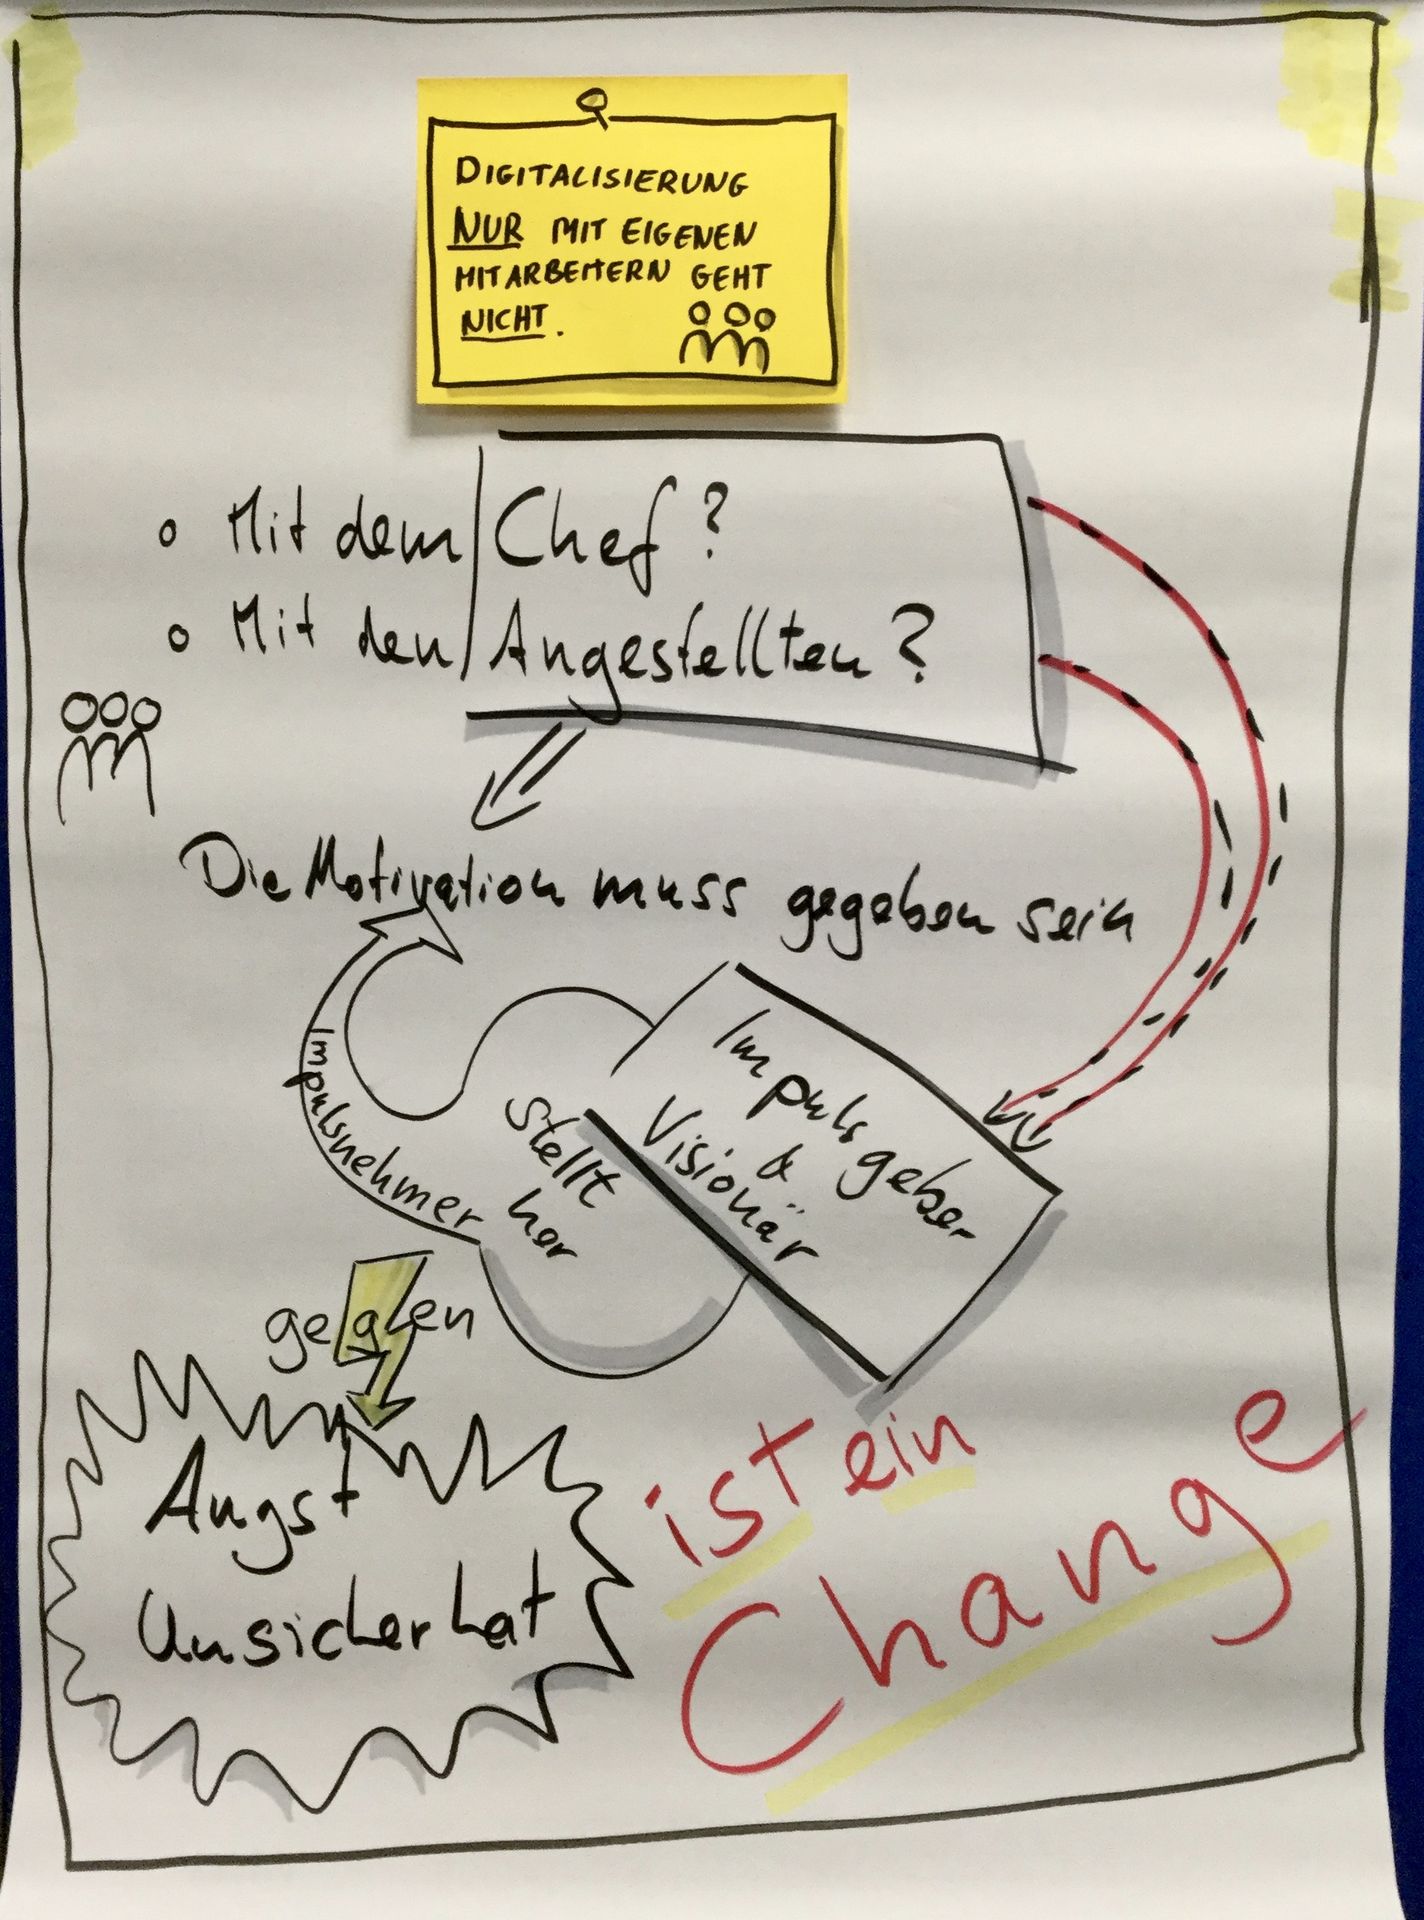 DIGITALISIERUNG
NUR MIT EIGENEN
MITARBEITERN GEHT
NICHT.
Mit dem Chef?
Mit den Angestellten?
Die Motivation muss gegeben sein
Impulsgeber
&
Visionär
stellt
her
Impulsnehmer
gegen
Angst
Unsicherhat
ist ein
Change